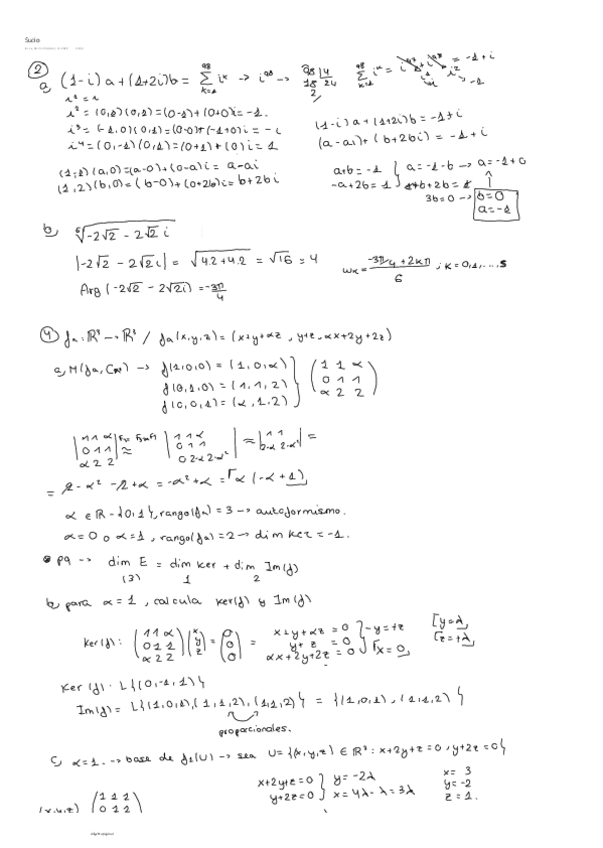 Sucio
②
a) (1-i)a + (1+2i)b = Σ i^k → i^98 → 98 |4
18 24
2/
Σ i^k = = -1+i
i² = (0,1)(0,1) = (0-1)+(0+0)i = -1.
i³ = (-1,0)(0,1) = (0-0)+(-1+0)i = -i
i⁴ = (0,-1)(0,1) = (0+1)+(0)i = 1
(1,-1)(a,0) = (a-0)+(0-a)i = a-ai
(1,2)(b,0) = (b-0)+(0+2b)i = b+2bi
(1-i)a + (1+2i)b = -1+i
(a-ai)+(b+2bi) = -1+i
a+b = -1 } a = -1-b → a = -1+0
-a+2b = 1
3b = 0 → b=0
a=-1
b) √-2√2 - 2√2 i
|-2√2 - 2√2i| = √4.2+4.2 = √16 = 4
Arg(-2√2 - 2√2i) = -3π/4
wk = -3π/4 + 2kπ / 6 ; k = 0,1,...,5
④ fα: ℝ³ → ℝ³ / fα(x,y,z) = (x+y+αz, y+z, αx+2y+2z)
a) M(fα, Cℝ³) → f(1,0,0) = (1,0,α)
f(0,1,0) = (1,1,2)
f(0,0,1) = (α,1,2)
(1 1 α
0 1 1
α 2 2)
|1 1 α
0 1 1
α 2 2| ≈ |1 1 α
0 1 1
0 2-α 2-α²| = |1 1
2-α 2-α²| =
= 2-α² -2+α = -α²+α = α(-α+1)
α ∈ ℝ-{0,1}, rango(fα) = 3 → automorfismo.
α=0 o α=1, rango(fα) = 2 → dim Ker = -1.
pq → dim E = dim Ker + dim Im(f)
(3) 1 2
b) para α=1, calcula Ker(f) y Im(f)
Ker(f): (1 1 α
0 1 1
α 2 2) (x
y
z) = (0
0
0) = x+y+αz = 0
y+z = 0
αx+2y+2z = 0 } -y=+z
x=0
[y=λ
z=+λ
Ker(f): L{(0,-1,1)}
Im(f) = L{(1,0,1),(1,1,2),(1,1,2)} = {(1,0,1),(1,1,2)}
proporcionales.
c) α=1. → base de f1(U) → sea U={(x,y,z) ∈ ℝ³: x+2y+z=0, y+2z=0}
x+2y+z=0 } y=-2λ
y+2z=0 x=4λ-λ=3λ
x= 3
y=-2
z=1.
(x,y,z) (1 1 1
0 1 1